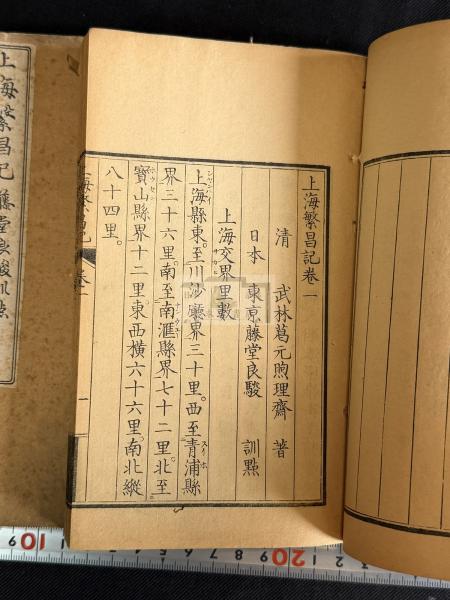 上海繁昌記卷一
清　武林葛元煦理齋　著
日本　東京藤堂良駿　訓點
上海交界里數
上海縣東至川沙廳界三十里。西至青浦縣
界三十六里。南至南滙縣界七十二里。北至
寶山縣界十二里。東西橫六十六里。南北縱
八十四里。
上海繁昌記　卷一　一
上海繁昌記　藤堂良駿訓点